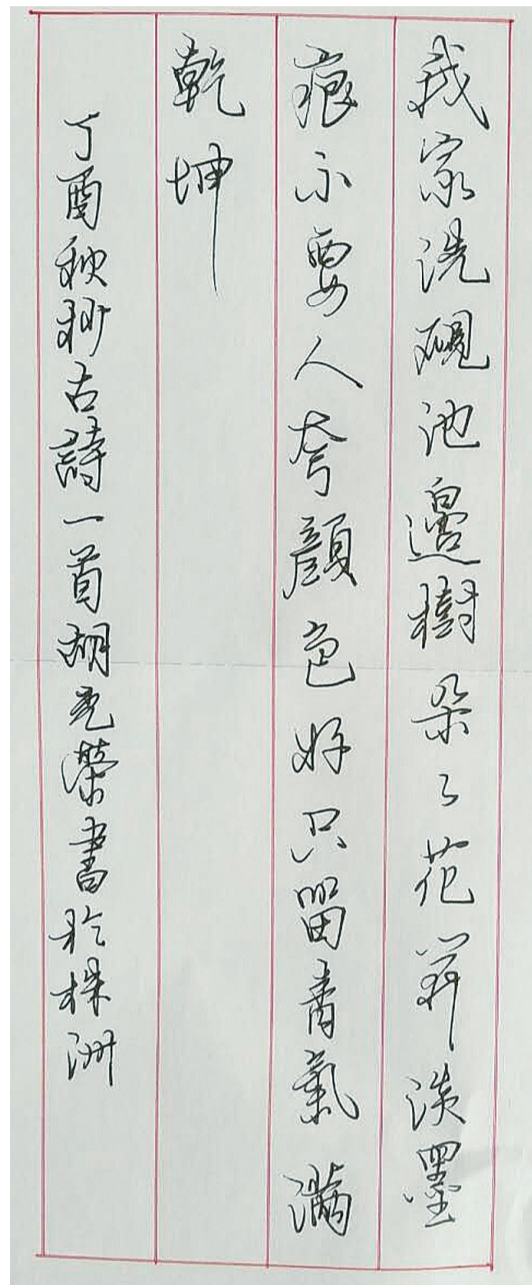 我家洗硯池邊樹朵々花開淡墨
痕不要人夸顏色好只留清氣滿
乾坤
丁酉秋抄古詩一首胡克榮書於株洲